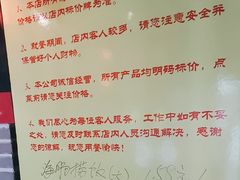 1、本店所有
价格以店内标价牌为准。
2、就餐期间，店内客人较多，请您注意安全并
保管好个人财物。
3、本公司诚信经营，所有产品均明码标价，点
菜前请您关注价格。
4、我们尽心为每位客人服务，工作中如有不妥
之处，请您及时联系店内人员沟通解决，感谢
您的谅解，祝您用餐愉快！